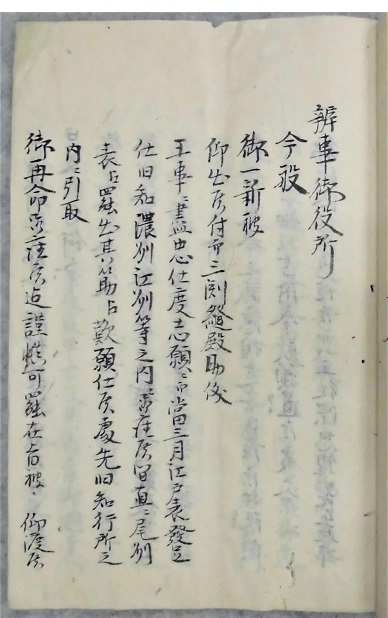 辨事御役所
今般
御一新被
仰出候付而三渕縫殿助儀
王事ニ盡忠仕度志願ニ而當三月江戸表發足
仕旧知濃州江州等之内ニ罷在候間直ニ尾州
表江罷出其筋江歎願仕候處先旧知行所之
内ニ引取
御再命 罷在候迠謹慎可罷在旨被 仰渡候